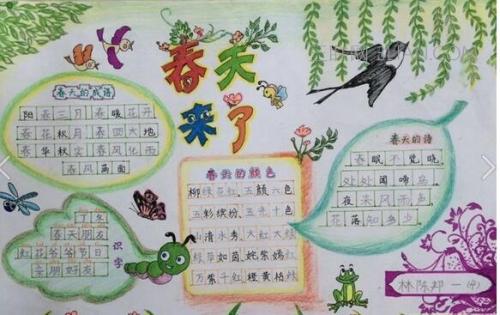 春天来了
春天的成语
阳春三月 春暖花开
春花秋月 春回大地
春华秋实 春风化雨
春风满面
春天的颜色
柳绿花红 五颜六色
五彩缤纷 五光十色
山清水秀 大红大绿
绿草如茵 姹紫嫣红
万紫千红 橙黄柏绿
春天的诗
春眠不觉晓
处处闻啼鸟
夜来风雨声
花落知多少
识字
春天朋友
红花爷爷节日
亲朋好友